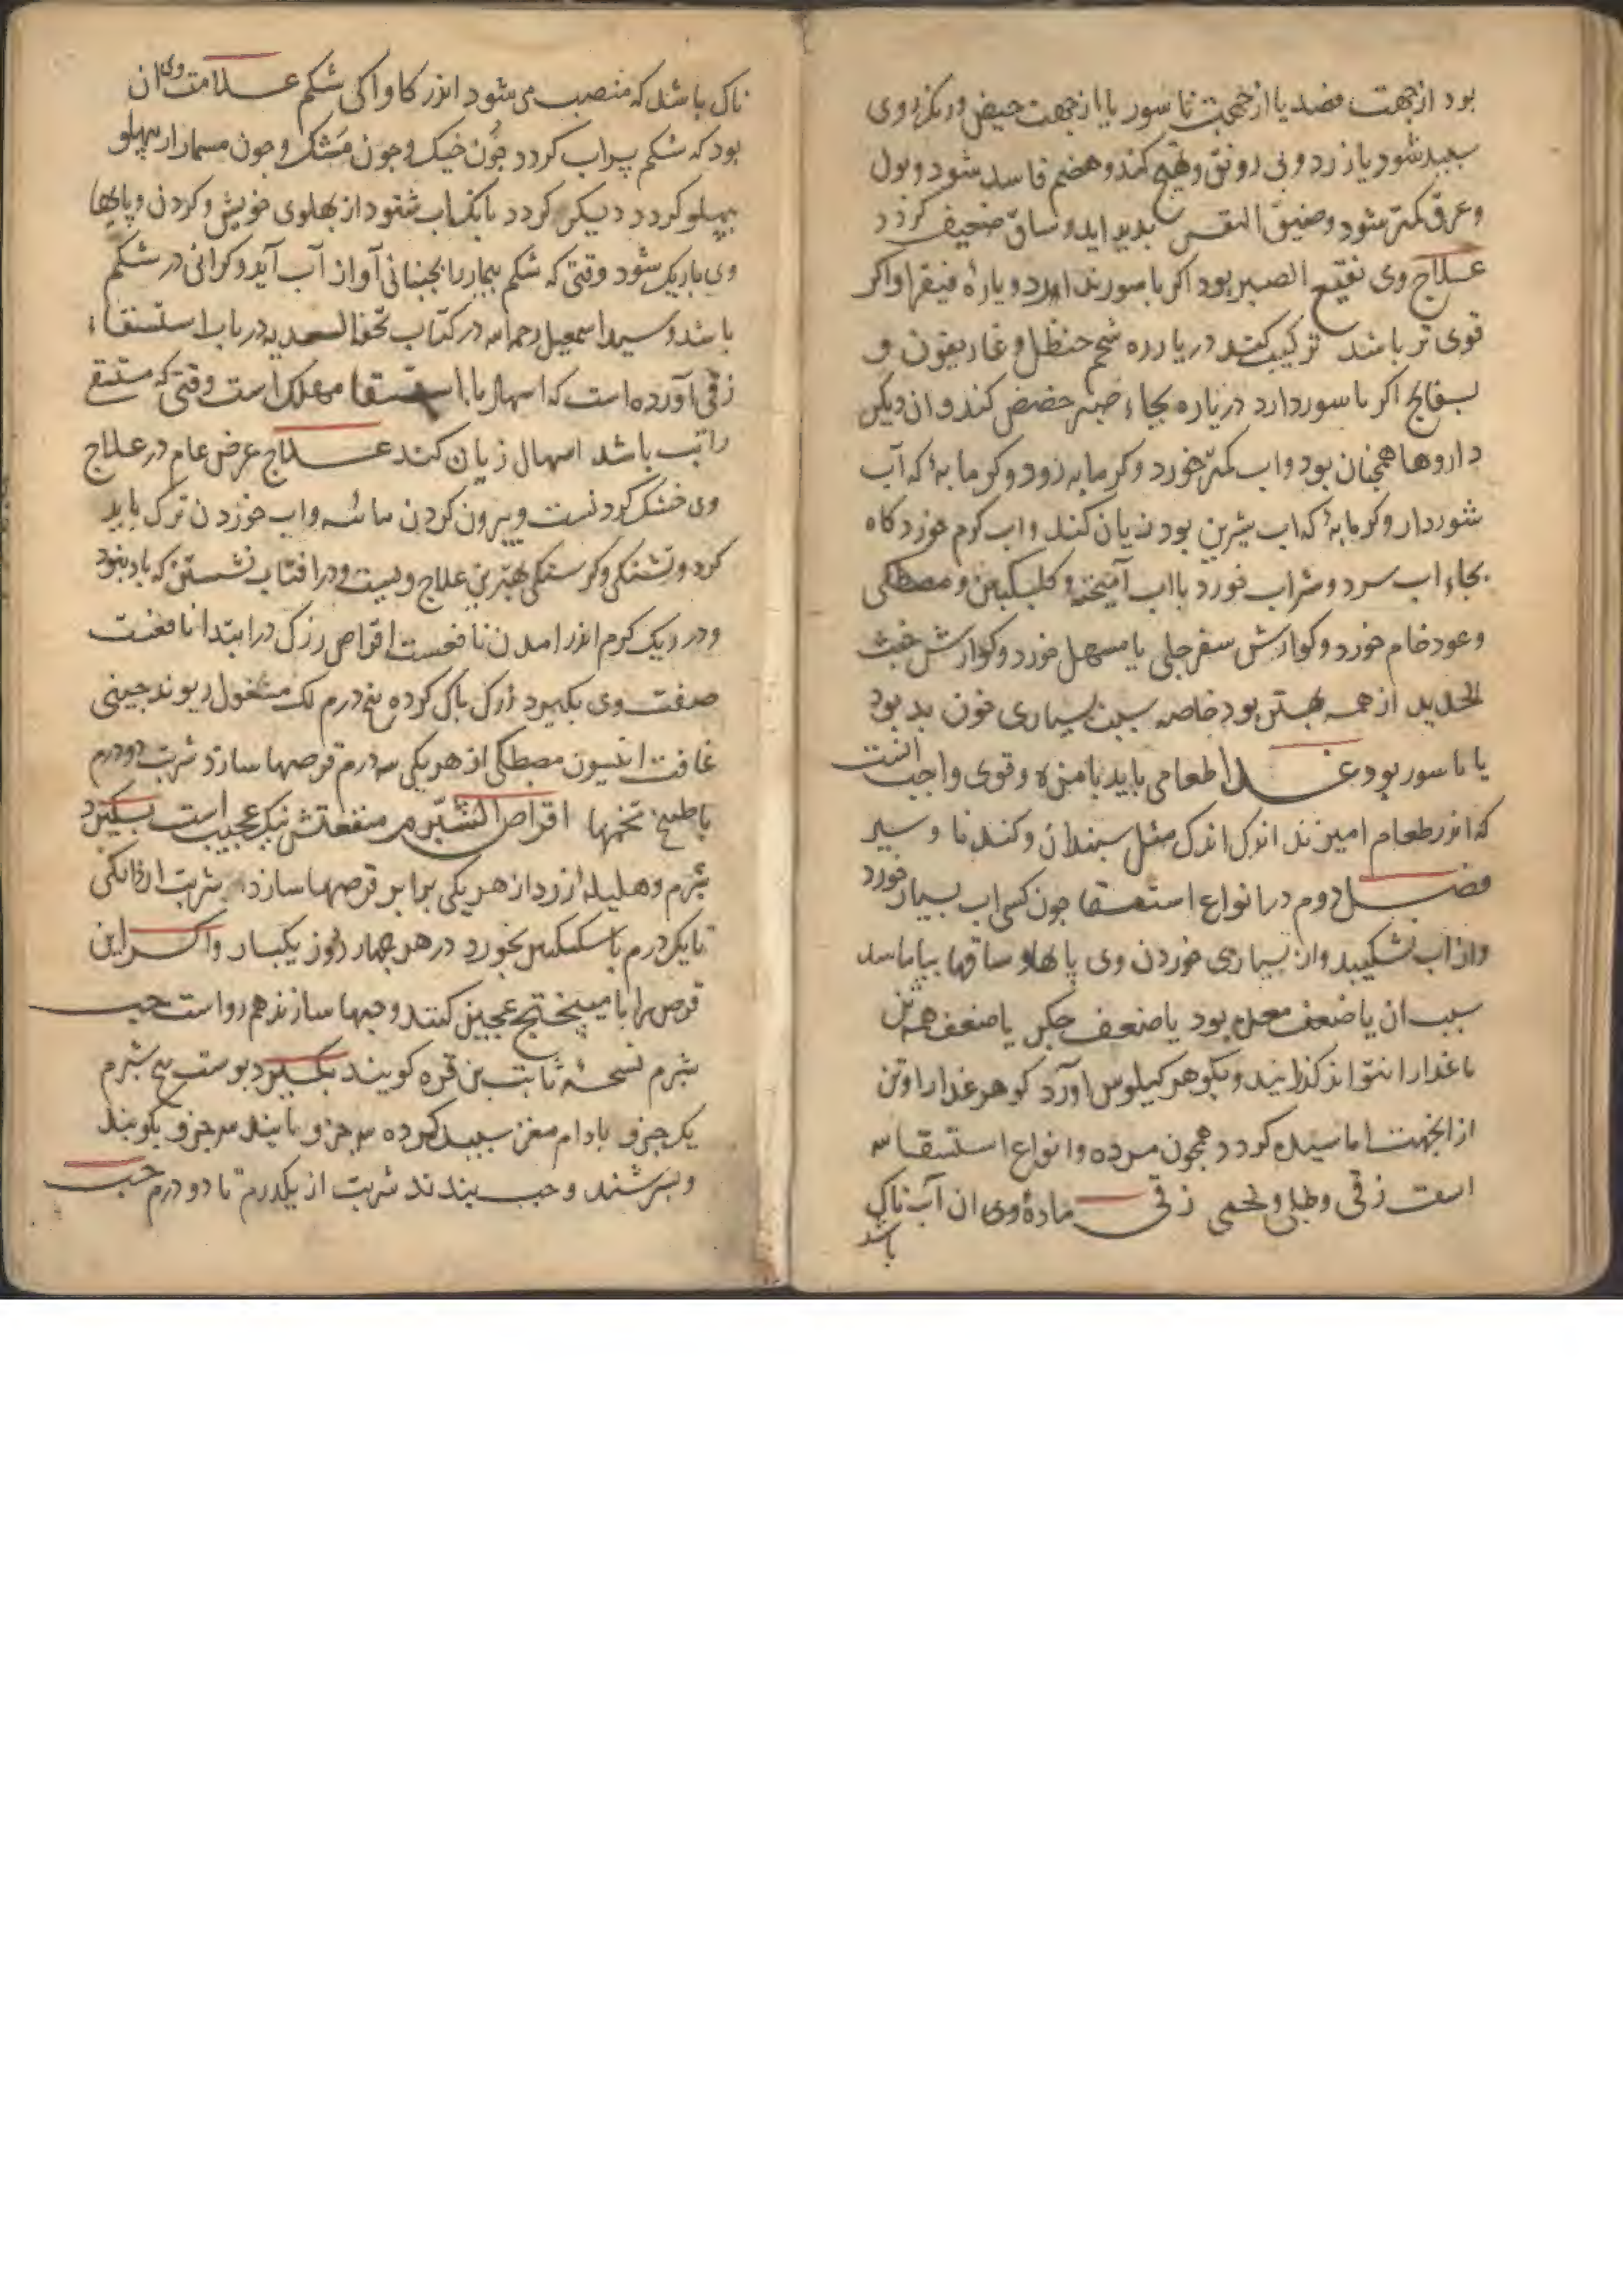 بود از جهت فصد یا از جهت ناسور یا از جهت حیض و رنک روی
سبید شود یا زرد و بی رونق و تهیج کند و هضم فاسد شود و بول
و عرق کمتر شود و ضیق النفس بدید اید و ساق ضعیف کردد
علاج وی نقیع الصبر بود اکر باسور ندارد و یاره فیقرا و اکر
قوی تر باشد ترکیب کنند در یاره شحم حنظل و غاریقون و
بسفایج اکر باسور دارد در یاره بجاء صبر حضض کند و ان دیکر
داروها همجنان بود و اب کمتر خورد و کرمابه زود و کرمابهٔ که آب
شور دارد و کرمابهٔ که اب شیرین بود زیان کند و اب کرم خورد کاه
بجاء اب سرد و شراب خورد با اب آمیخته و کلبکبین و مصطکی
و عود خام خورد و کوارش سفرجلی یا مسهل خورد و کوارش خبث
الحدید از همه بهتر بود خاصه سبب بسیاری خون بد بود
یا باسور بود غذا طعامی باید بامزه و قوی و اجب انست
که اندر طعام امیزند اندک اندک مثل سبندان و کندنا و سیر
فصل دوم در انواع استسقا جون کسی اب بسیار خورد
و از اب نشکیبد و از بسیاری خوردن وی پایها و ساقها بیاماسد
سبب ان یا ضعف معده بود یا ضعف جکر یا ضعف همه تن
تا غذا را نتواند کذرانید و بکوهر کیلوس اورد کوهر غذا را و تن
از انجهت اماسیده کردد همجون مرده و انواع استسقا سه
است زقی و طبلی و لحمی زقی مادهٔ وی ان آب ناک
باشد
ناک باشد که منصب می شود اندر کاواکی شکم علامت وی ان
بود که شکم پر اب کردد جون خیک و جون مشک و جون بیمار از پهلو
بپهلو کردد دیکر کردد بانک اب شنود از پهلوی خویش و کردن و پایها
وی باریک شود وقتی که شکم بیمار را بجنبانی آواز آب آید و کرانی در شکم
باشد و سید اسمعیل رحمه الله در کتاب تحفة السعدیه در باب استسقاء
زقی آورده است که اسهال با استسقا مهلک است وقتی که مستسقی
را تب باشد اسهال زیان کند علاج غرض عام در علاج
وی خشک کردنست و بیرون کردن مائیه و اب خوردن ترک باید
کرد و تشنکی و کرسنکی بهترین علاج ویست و در افتاب نشستن که باد نبود
و در ریک کرم اندر امدن نافعست اقراص زرک در ابتدا نافعست
صفت وی بکیرد زرک باک کرده پنج درم لک مغسول ریوند جینی
غافت انیسون مصطکی از هر یکی سه درم قرصها سازد شربت دو درم
با طبیخ تخمها اقراص الشبرم منفعتش نیک عجیب است بکیرد
شبرم و هلیله زرد از هر یکی برابر قرصها سازد شربت از دانکی
تا یکدرم با سکنکبین بخورد در هر جهار روز یکبار و اکر این
قرص را با میبختج عجین کنند و حبها سازند هم رواست حب
شبرم نسخهٔ ثابت بن قره کویند بکیرد بوست بیخ شبرم
یک جزو بادام مغز سبید کرده سه جزو بکوبند
و بسرشند و حب بندند شربت از یکدرم تا دو درم حب